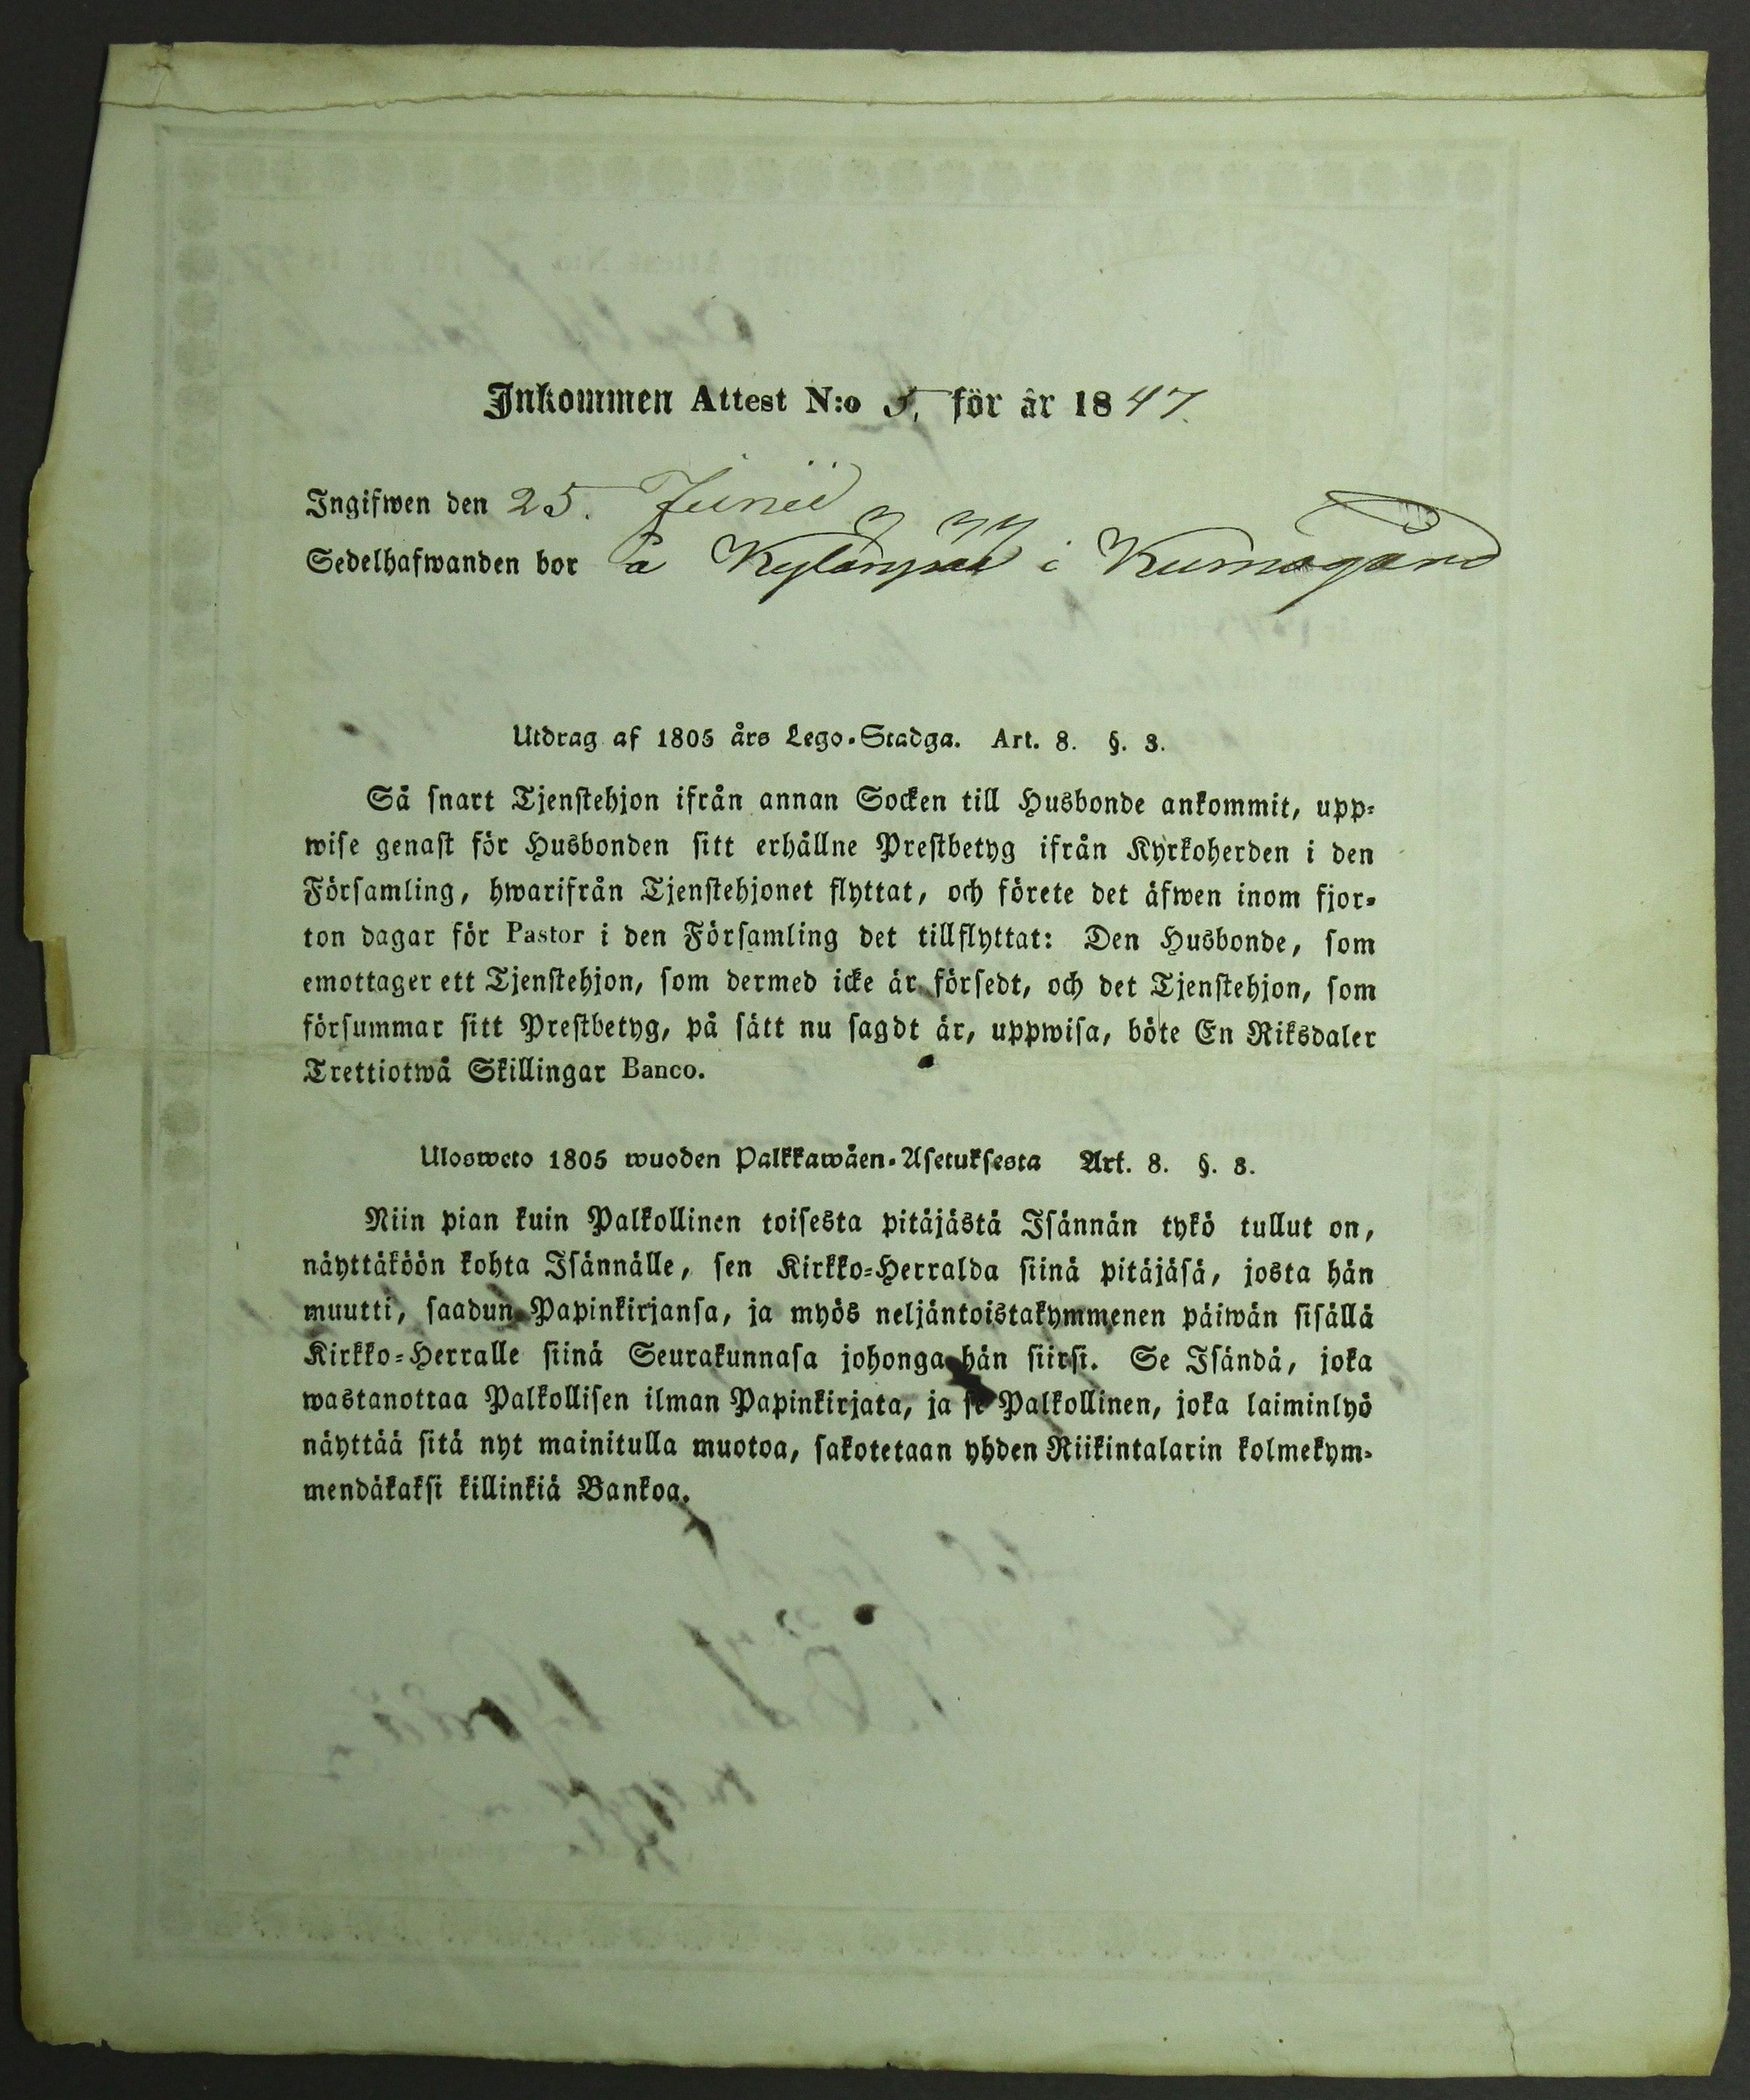 Inkommen Attest N:o 5. för år 1847.
Ingifwen den 25. Junii
Sedelhafwanden bor på Kylänpää i Kumogård
Utdrag af 1805 års Lego-Stadga. Art. 8. §. 3.
Så snart Tjenstehjon ifrån annan Socken till Husbonde ankommit, upp-
wise genast för Husbonden sitt erhållne Prestbetyg ifrån Kyrkoherden i den
Församling, hwarifrån Tjenstehjonet flyttat, och förete det äfwen inom fjor-
ton dagar för Pastor i den Församling det tillflyttat: Den Husbonde, som
emottager ett Tjenstehjon, som dermed icke är försedt, och det Tjenstehjon, som
försummar sitt Prestbetyg, på sätt nu sagdt är, uppwisa, böte En Riksdaler
Trettiotwå Skillingar Banco.
Ulosweto 1805 wuoden Palkkawäen-Asetuksesta Art. 8. §. 3.
Niin pian kuin Palkollinen toisesta pitäjästä Isännän tykö tullut on,
näyttäköön kohta Isännälle, sen Kirkko-Herralda siinä pitäjäsä, josta hän
muutti, saadun Papinkirjansa, ja myös neljäntoistakymmenen päiwän sisällä
Kirkko-Herralle siinä Seurakunnasa johonga hän siirsi. Se Isändä, joka
wastanottaa Palkollisen ilman Papinkirjata, ja se Palkollinen, joka laiminlyö
näyttää sitä nyt mainitulla muotoa, sakotetaan yhden Riikintalarin kolmekym-
mendäkaksi killinkiä Bankoa.